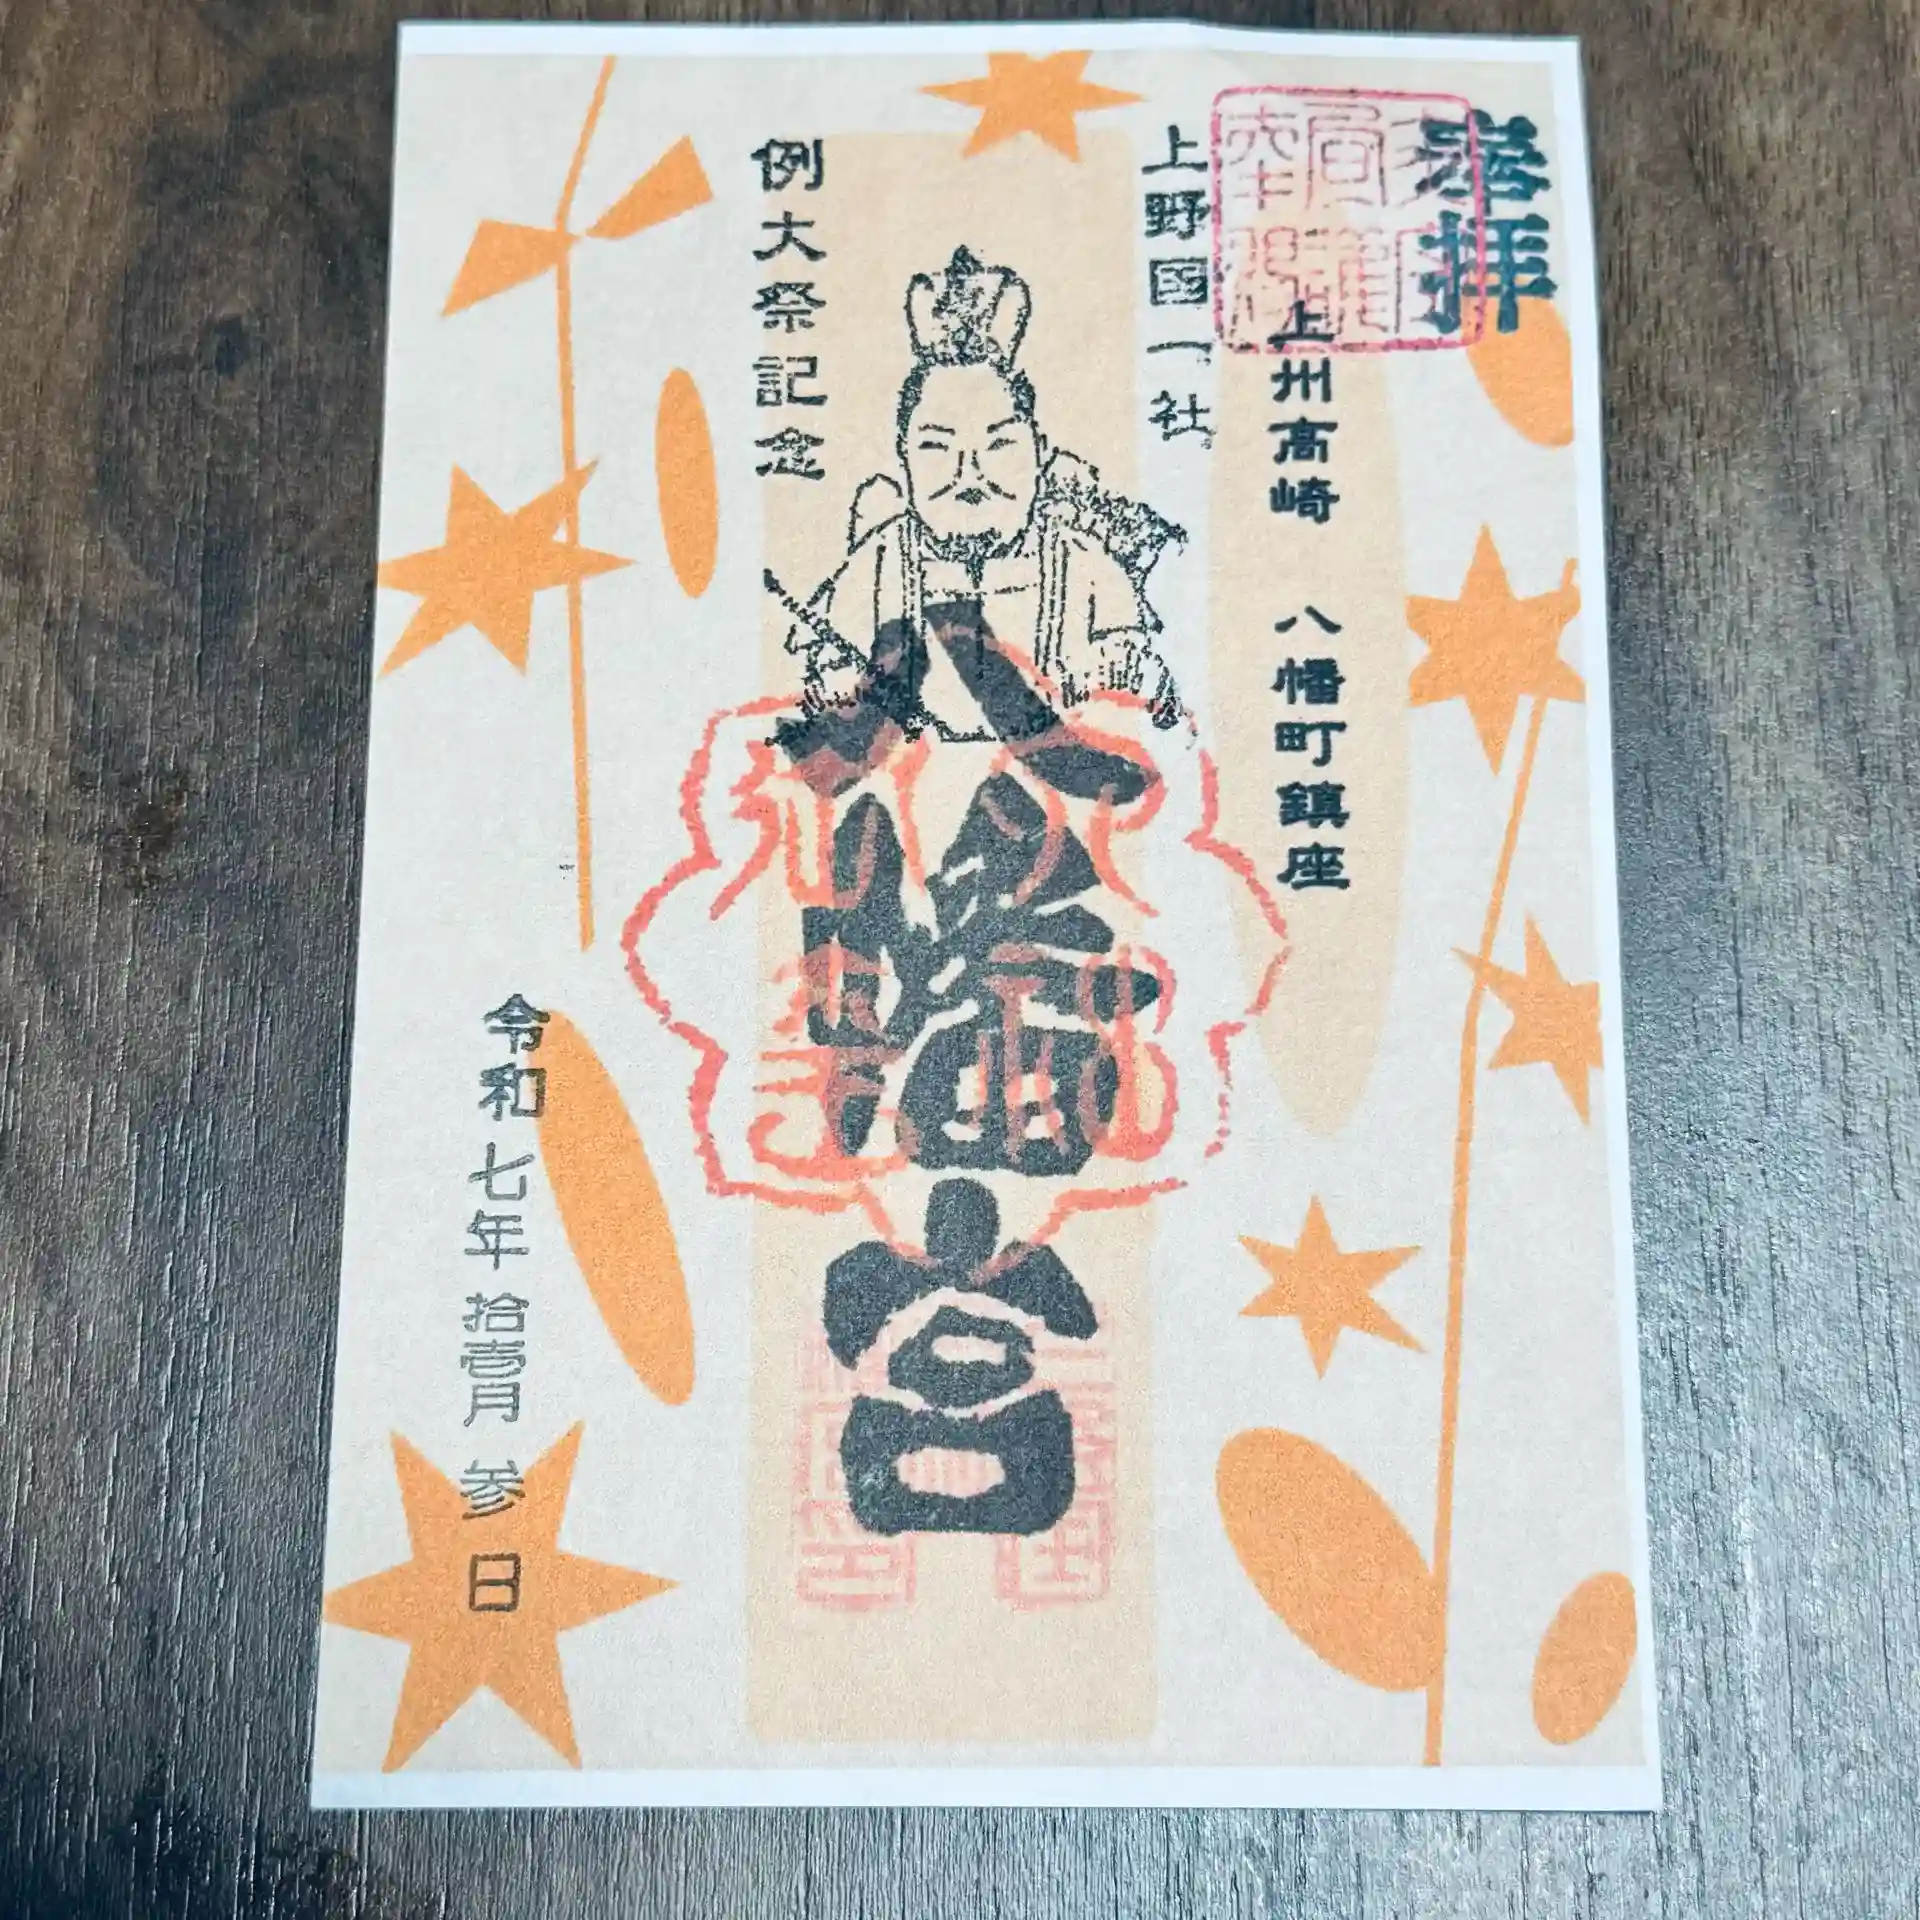 奉拝
上州高崎 八幡町鎮座
上野国一社
八幡宮
例大祭記念
令和七年拾壹月参日